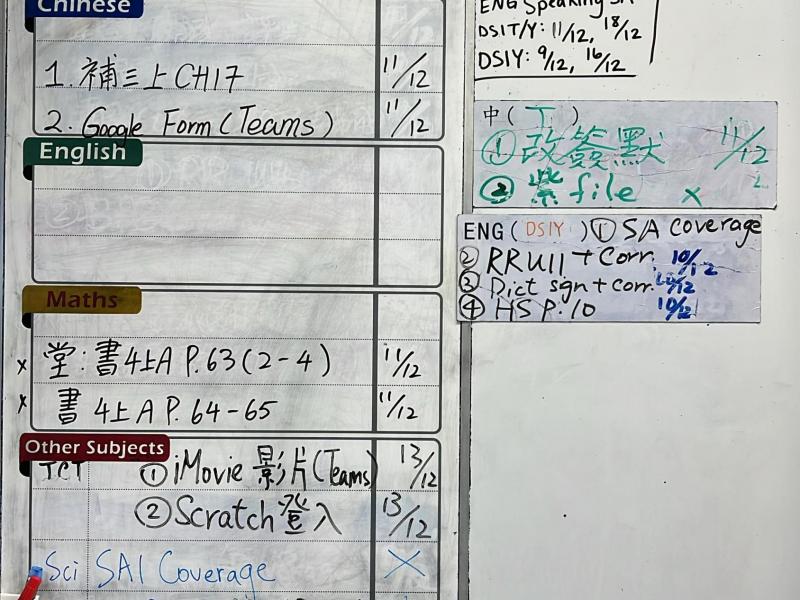 Chinese
1. 補三上 CH17 11/12
2. Google Form (Teams) 11/12
English
Maths
x 堂: 書4上A P.63 (2-4) 11/12
x 書 4上A P.64-65 11/12
Other Subjects
① iMovie 影片(Teams) 13/12
② Scratch 登入 13/12
Sci SA1 Coverage X
ENG Speaking
DSIT/Y: 11/12, 18/12
DSIY: 9/12, 16/12
中( 丁 )
① 改簽默 11/12
② 紫 file x
ENG( DSIY ) ① S/A coverage
② RRU11 + Corr. 10/12
③ Dict sgn + corr. 10/12
④ HS P.10 10/12